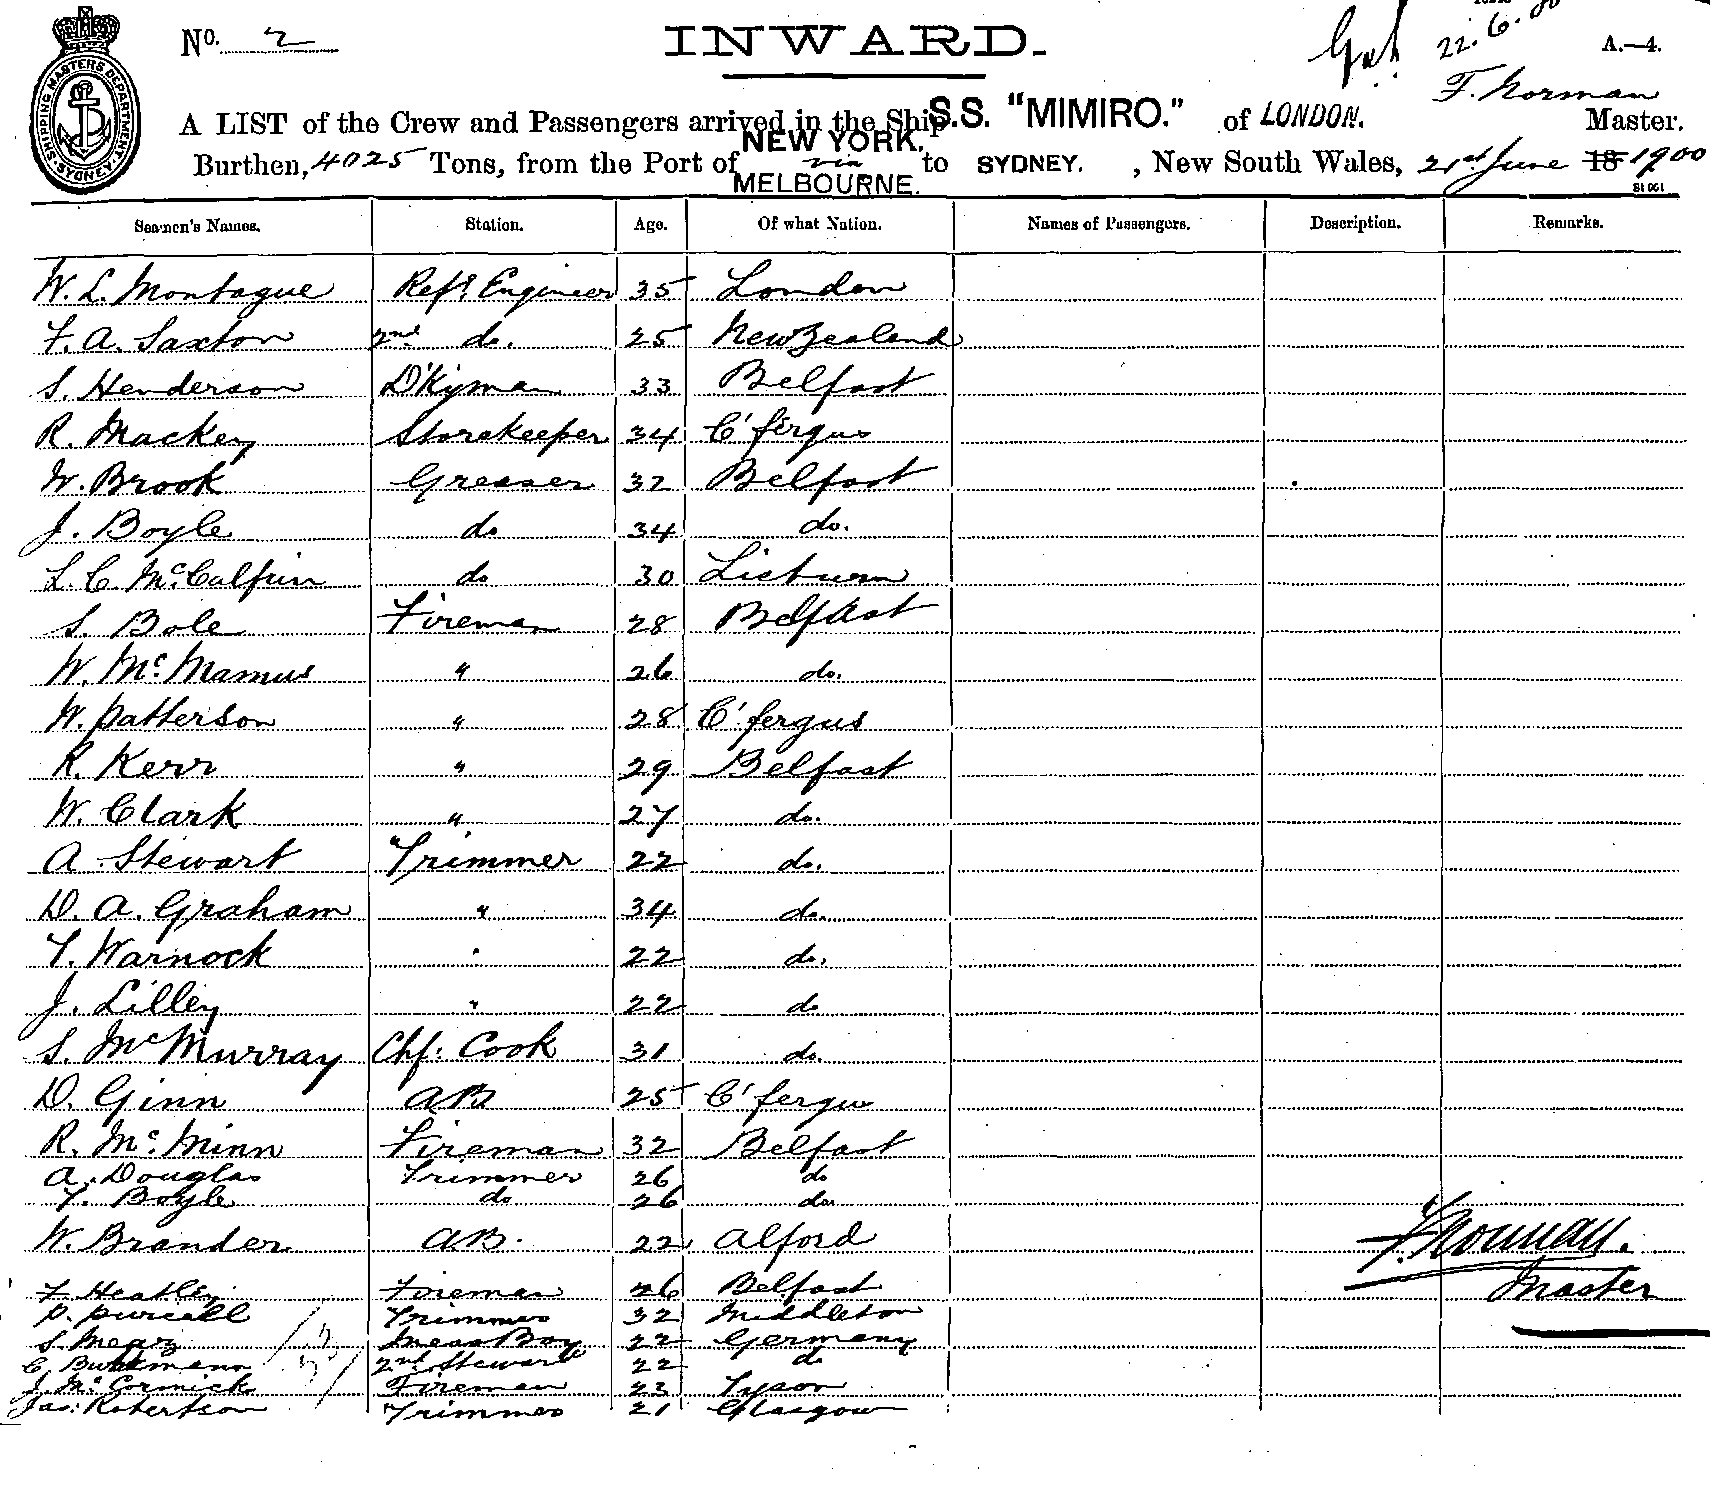 No. 2
INWARD.
22.6.00
A.—4.
F. Norman
SHIPPING MASTERS DEPARTMENT SYDNEY
A LIST of the Crew and Passengers arrived in the Ship S.S. "MIMIRO." of LONDON. Master.
Burthen, 4025 Tons, from the Port of NEW YORK. via MELBOURNE. to SYDNEY. , New South Wales, 21st June 18 1900
Seamen's Names. Station. Age. Of what Nation. Names of Passengers. Description. Remarks.
W. L. Montague Refr. Engineer 35 London
F. A. Saxton 2nd do. 25 New Zealand
S. Henderson D'Kyman 33 Belfast
R. Mackey Storekeeper 34 C'fergus
W. Brook Greaser 32 Belfast
J. Boyle do 34 do.
L. C. McCalfin do 30 Lisburn
S. Bole Fireman 28 Belfast
W. McMamus " 26 do.
W. Patterson " 28 C'fergus
R. Kerr " 29 Belfast
W. Clark " 27 do.
A. Stewart Trimmer 22 do.
D. A. Graham " 34 do.
T. Warnock " 22 do.
J. Lilley " 22 do
S. McMurray Chf: Cook 31 do.
D. Ginn AB 25 C'fergus
R. McMinn Fireman 32 Belfast
A. Douglas Trimmer 26 do
T. Boyle do 26 do
W. Brander AB. 22 Alford
F. Norman.
Master
F Heatley Fireman 26 Belfast
P. Purcell Trimmer 32 Middleton
S. Mearz Mess Boy 22 Germany
C. 2nd Steward 22 do
J. McCormick Fireman 23
Jas. Robertson Trimmer 21 Glasgow